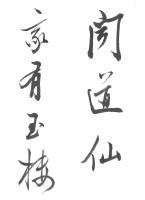 闻道仙
家有玉楼